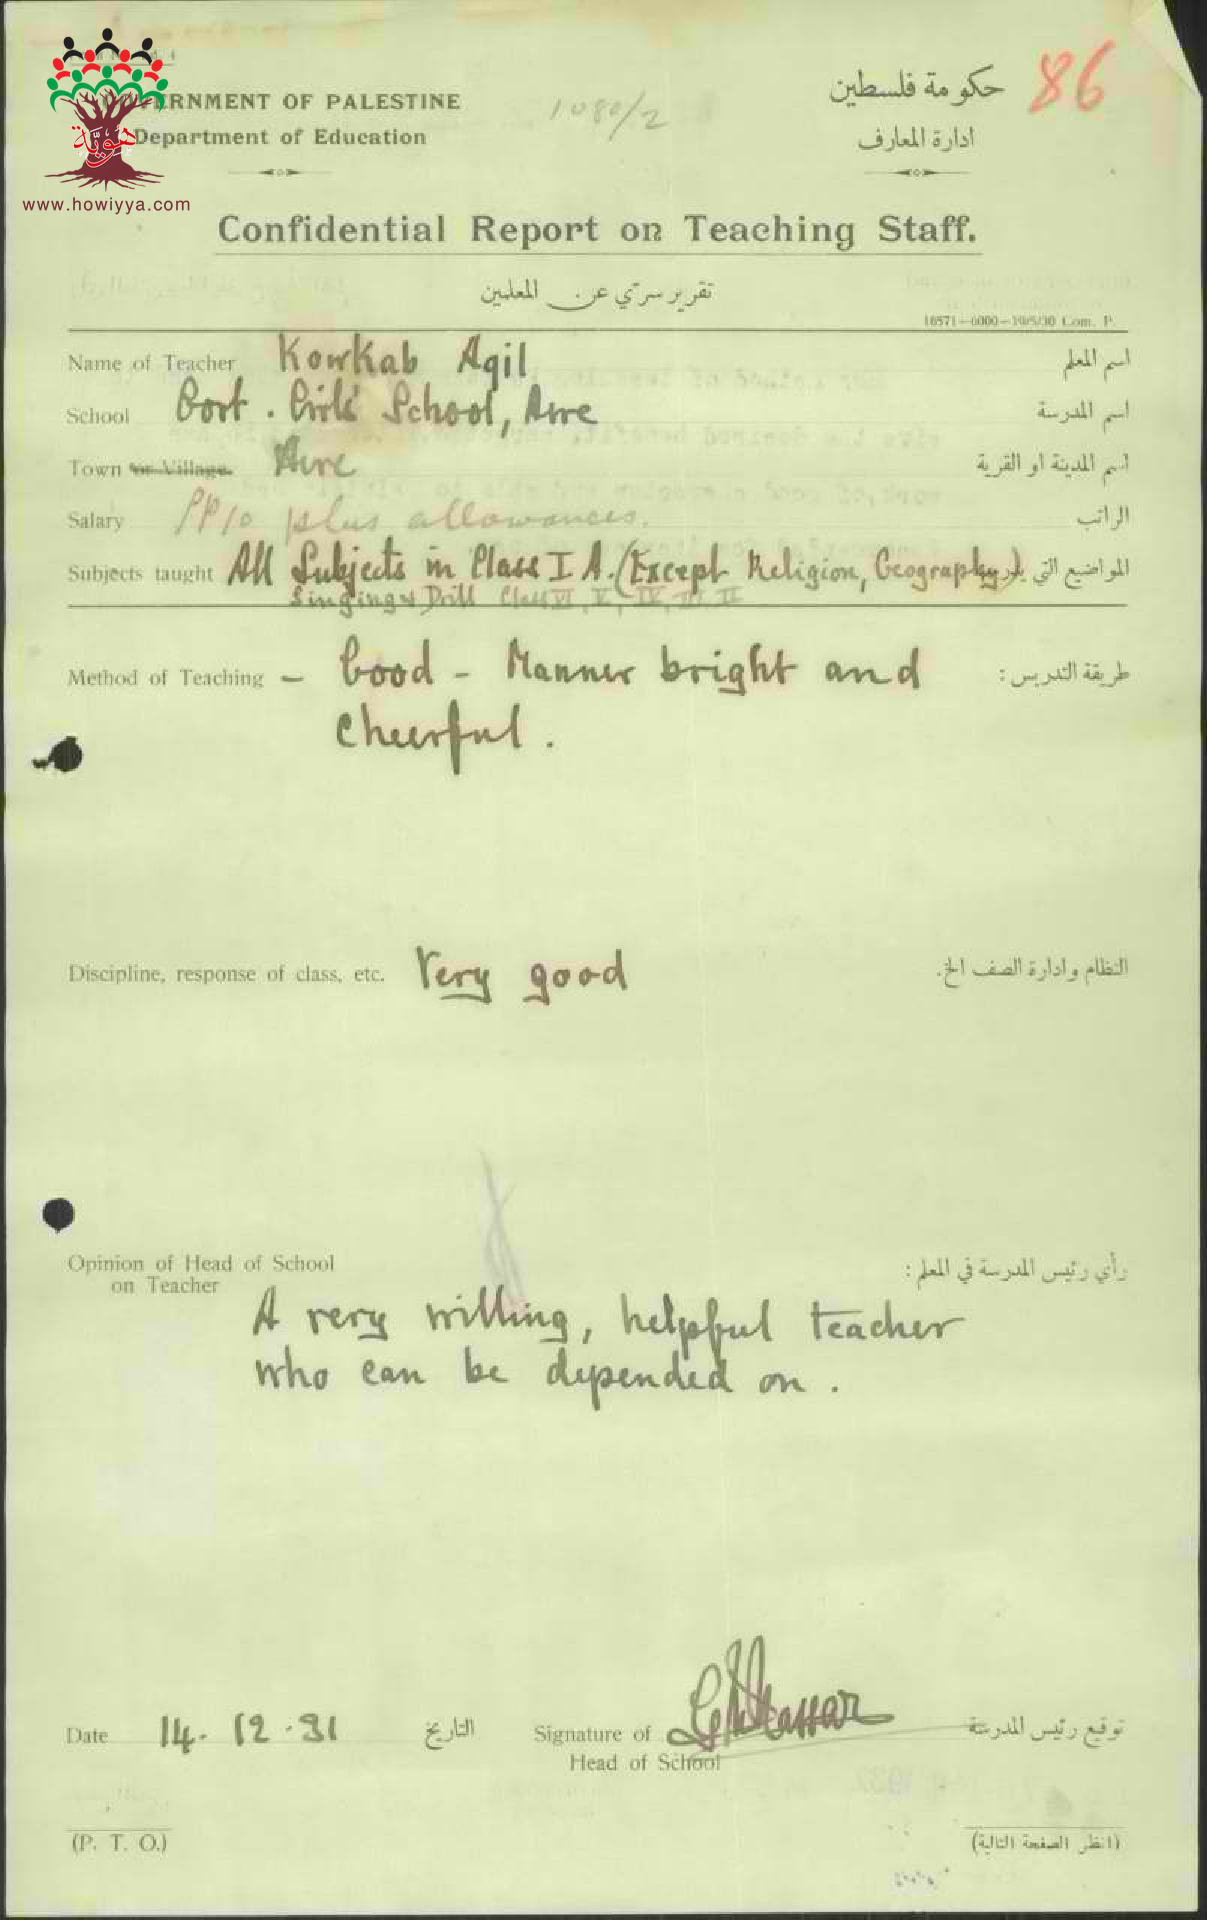 GOVERNMENT OF PALESTINE
Department of Education
www.howiyya.com
هوية
1080/2
حكومة فلسطين
ادارة المعارف
86
Confidential Report on Teaching Staff.
تقرير سري عن المعلمين
16571—6000—19/5/30 Com. P.
Name of Teacher Kowkab Aqil اسم المعلم
School Govt. Girls' School, Acre اسم المدرسة
Town or Village. Acre اسم المدينة او القرية
Salary plus allowances. الراتب
Subjects taught All Subjects in Class I A. (Except Religion, Geography) المواضيع التي
Singing & Drill Class VI, V, IV, III, II
Method of Teaching – Good - Manner bright and طريقة التدريس :
cheerful.
Discipline, response of class, etc. Very good النظام وادارة الصف الخ.
Opinion of Head of School رأي رئيس المدرسة في المعلم :
on Teacher
A very willing, helpful teacher
who can be depended on.
Date 14.12.31 التاريخ Signature of توقيع رئيس المدرسة
Head of School
(P. T. O.) (انظر الصفحة التالية)